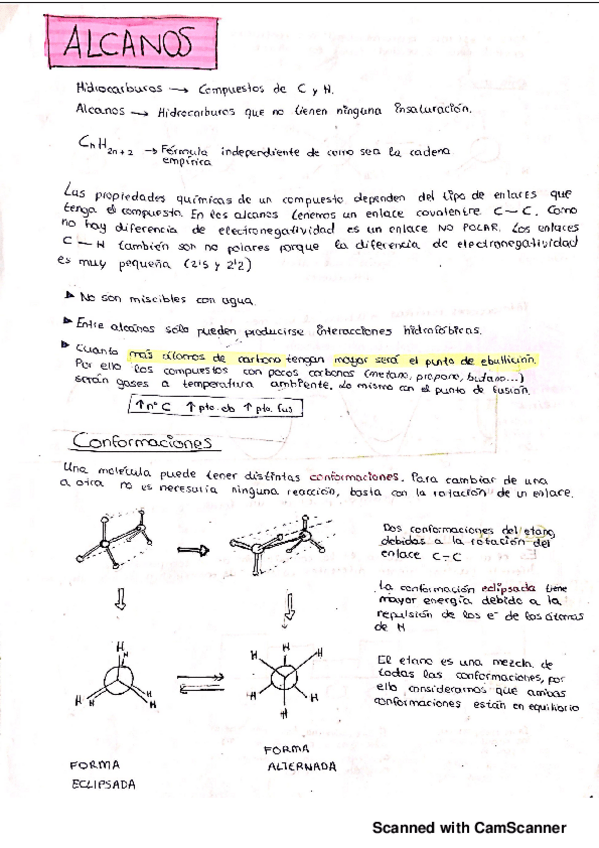 ALCANOS
Hidrocarburos → Compuestos de C y H.
Alcanos → Hidrocarburos que no tienen ninguna insaturación.
CnH2n+2 → Fórmula independiente de como sea la cadena
empírica
Las propiedades químicas de un compuesto dependen del tipo de enlaces que
tenga el compuesto. En los alcanos tenemos un enlace covalente C-C. Como
no hay diferencia de electronegatividad es un enlace NO POLAR. Los enlaces
C-H también son no polares porque la diferencia de electronegatividad
es muy pequeña (2'5 y 2'2)
▸ No son miscibles con agua.
▸ Entre alcanos sólo pueden producirse interacciones hidrofóbicas.
▸ Cuanto más átomos de carbono tengan mayor será el punto de ebullición.
Por ello los compuestos con pocos carbonos (metano, propano, butano...)
serán gases a temperatura ambiente. Lo mismo con el punto de fusión.
↑nº C ↑pto. eb ↑pto. fus
Conformaciones
Una molécula puede tener distintas conformaciones. Para cambiar de una
a otra no es necesaria ninguna reacción, basta con la rotación de un enlace.
Dos conformaciones del etano
debidas a la rotación del
enlace C-C
La conformación eclipsada tiene
mayor energía debido a la
repulsión de los e- de los átomos
de H
H
H
H H
H
H
H
H
H
H
H
H
El etano es una mezcla de
todas las conformaciones, por
ello consideramos que ambas
conformaciones están en equilibrio
FORMA
ECLIPSADA
FORMA
ALTERNADA
Scanned with CamScanner